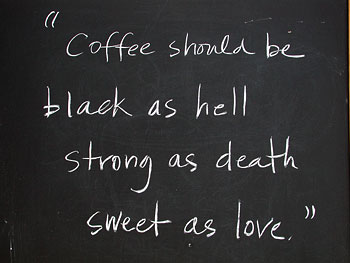 "Coffee should be
black as hell
strong as death
sweet as love."